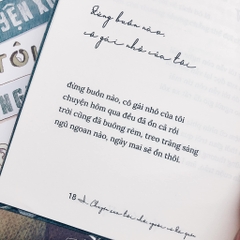 Đừng buồn nào,
cô gái nhỏ của tôi
đừng buồn nào, cô gái nhỏ của tôi
chuyện hôm qua đều đã ổn cả rồi
trời cũng đã buông rèm, treo trăng sáng
ngủ ngoan nào, ngày mai sẽ ổn thôi.
18
TÔI